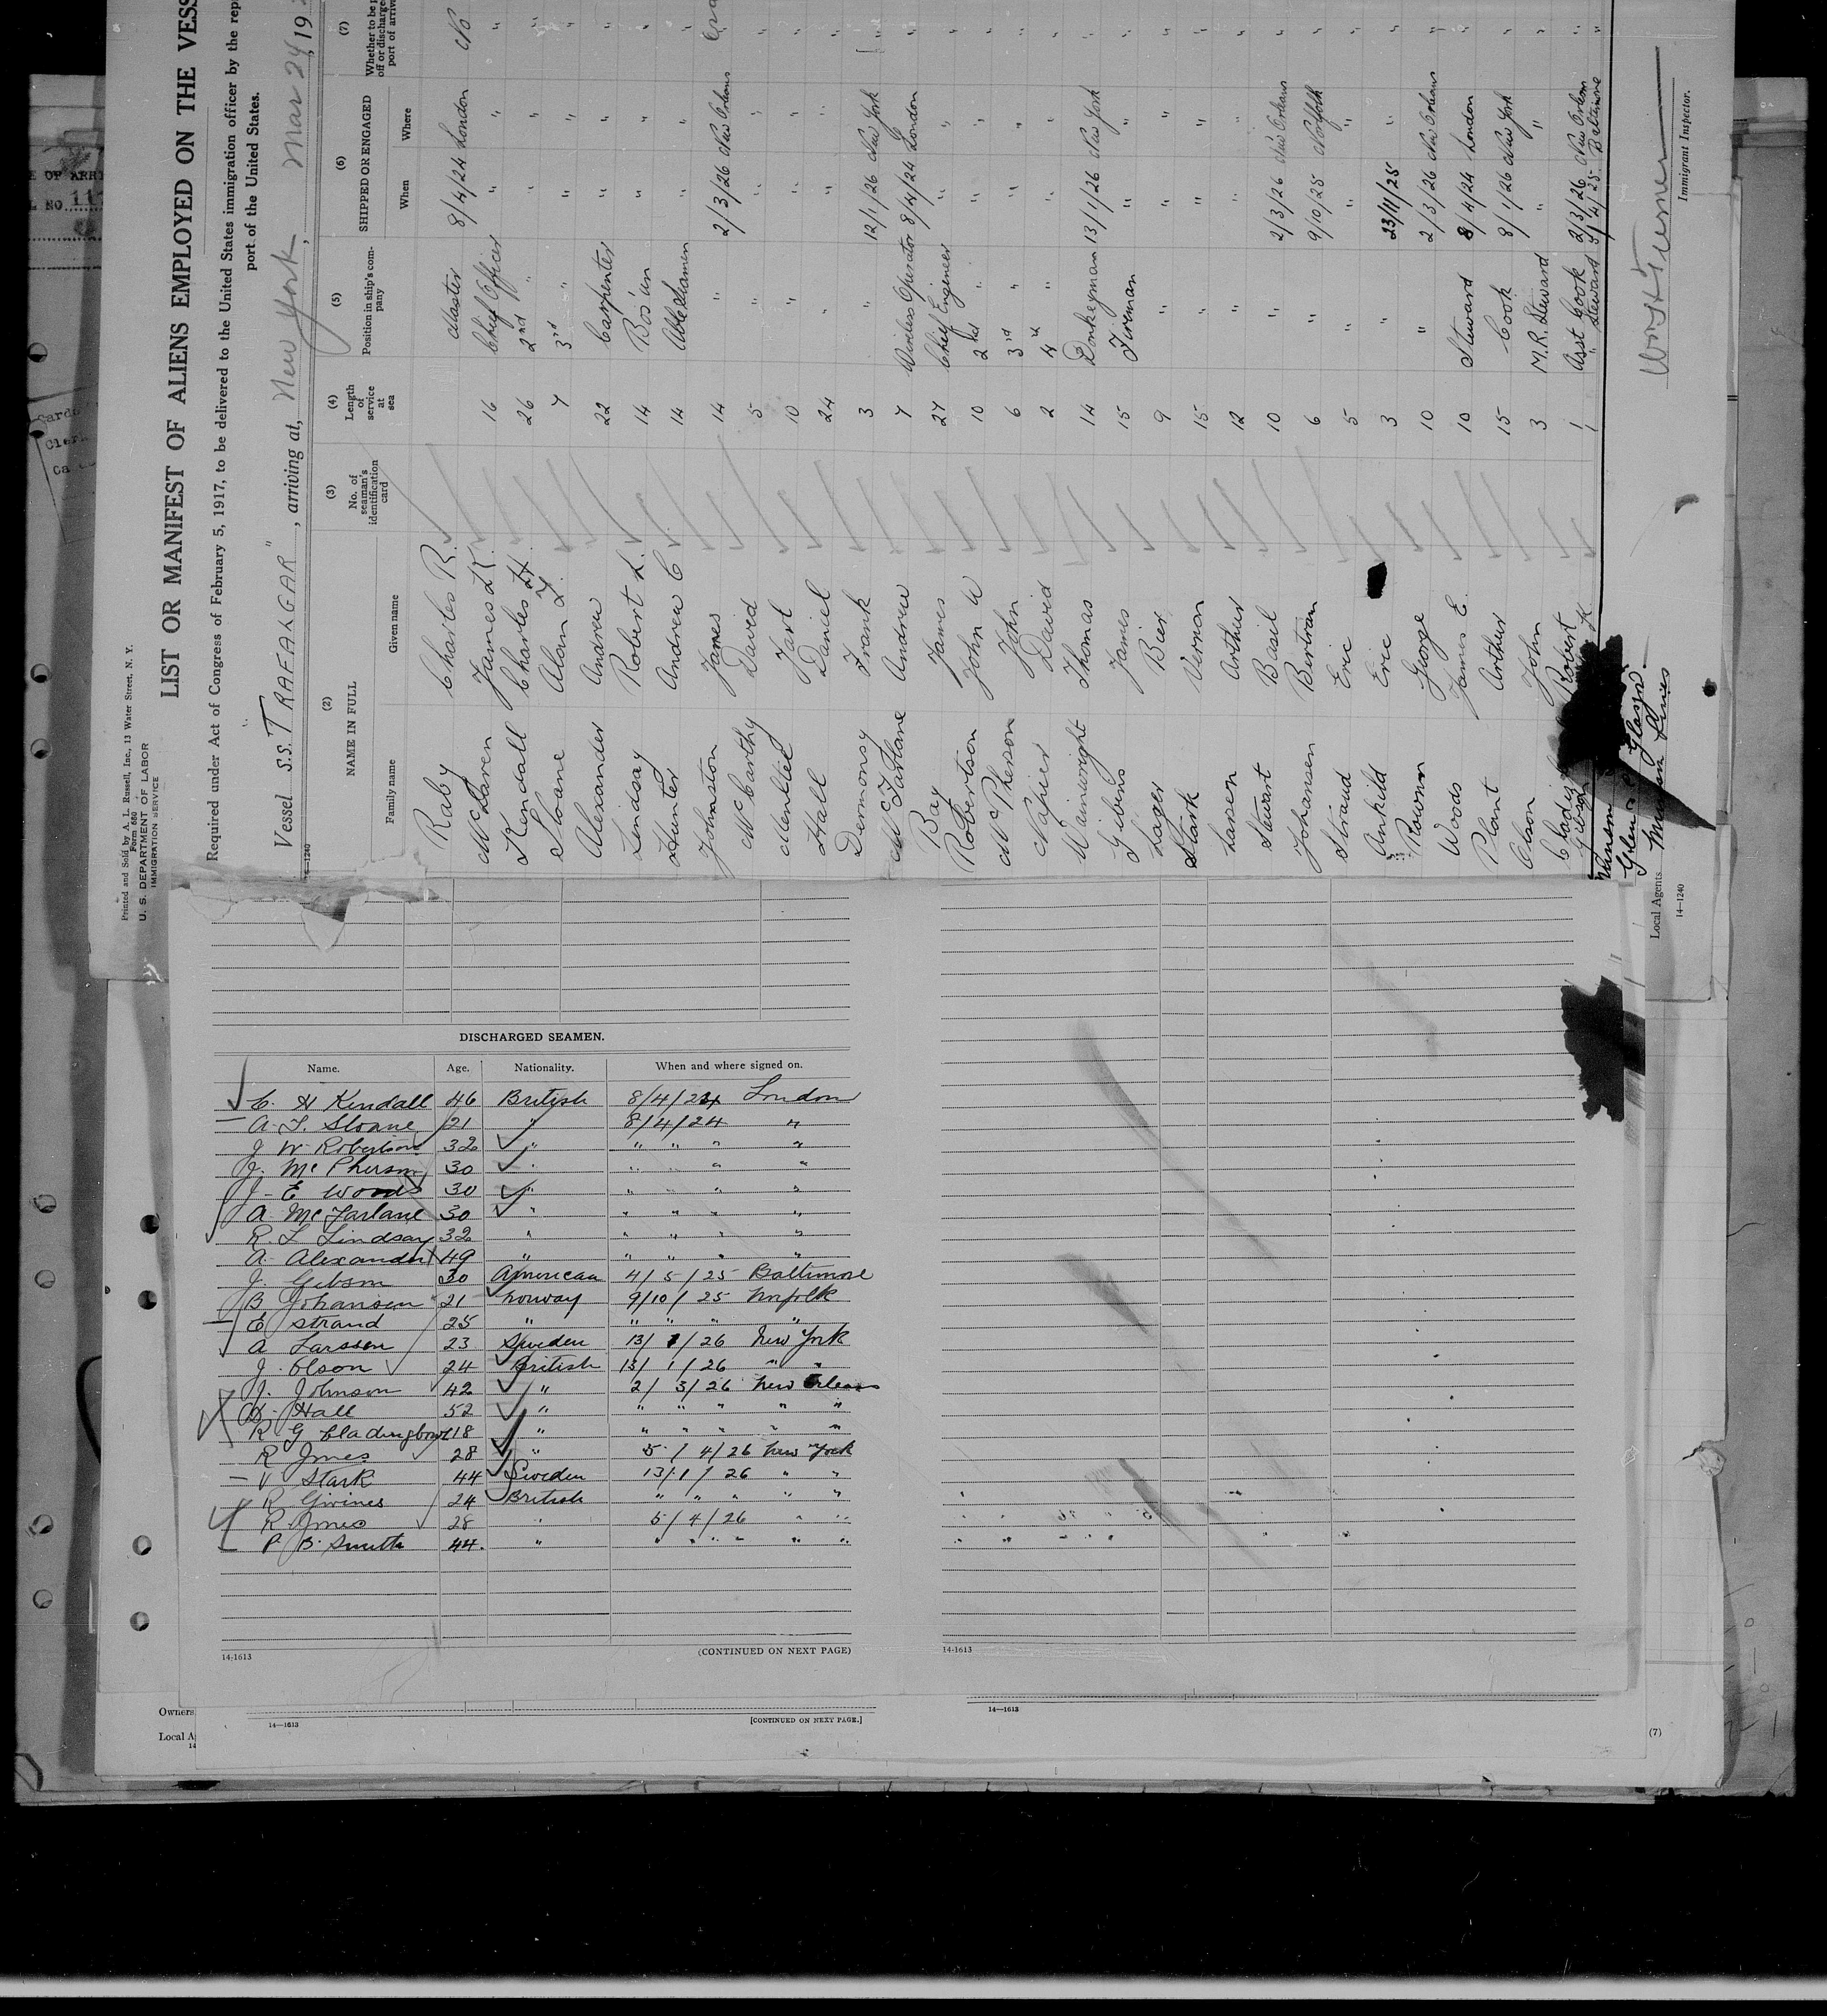 E OF ARRI
L NO. 11
Cards
Clerk
Printed and Sold by A. L. Russell, Inc., 13 Water Street, N. Y.
Form 680
U. S. DEPARTMENT OF LABOR
IMMIGRATION SERVICE
LIST OR MANIFEST OF ALIENS EMPLOYED ON THE VESS
Required under Act of Congress of February 5, 1917, to be delivered to the United States immigration officer by the rep
port of the United States.
Vessel S.S. "TRAFALGAR", arriving at, New York, Mar 24, 19
14-1240
(2) (3) (4) (5) (6) (7)
NAME IN FULL No. of seaman's identification card Length of service at sea Position in ship's company SHIPPED OR ENGAGED Whether to be p off or discharge port of arriva
Family name Given name When Where
Raby Charles R. Master 8/4/24 London No
McLaren James 16 Chief Officer " " "
Kendall Charles H. 26 2nd " " " "
Sloane Alan F. 7 3rd " " " "
Alexander Andrew 22 Carpenter " " "
Lindsay Robert L. 14 Bos'un " " "
Hunter Andrew C 14 Able Seamen " " "
Johnston James 14 " 2/3/26 New Orleans
McCarthy David 5 " " " "
10 " " " "
Hall Daniel 24 " " " "
Frank 3 " 12/1/26 New York "
McFarlane Andrew 7 Wireless Operator 8/4/24 London "
Bay James 27 Chief Engineer " " "
Robertson John W 10 2nd " " " "
McPherson John 6 3rd " " " "
Napier David 2 4th " " " "
Wainwright Thomas 14 Donkeyman 13/1/26 New York "
Gibbins James 15 Fireman " " "
Lager 9 " " " "
Stark Vernon 15 " " " "
Larsen Arthur 12 " " " "
Stewart Basil 10 " 2/3/26 New Orleans "
Johansen Bertram 6 " 9/10/25 Norfolk "
Strand Eric 5 " " " "
Eric 3 " 23/11/25 " "
George 10 " 2/3/26 New Orleans "
Woods James E. 10 Steward 8/4/24 London "
Plant Arthur 15 Cook 8/1/26 New York "
Olson John 3 M.R. Steward " " "
Robert 1 Asst Cook 2/3/26 New Orleans "
Gibson 1 " Steward 4/25 Baltimore "
Glasgow
Local Agents Munson Lines
14-1240
Immigrant Inspector.
DISCHARGED SEAMEN.
Name. Age. Nationality. When and where signed on.
C. H Kendall 46 British 8/4/24 London
A. F. Sloane 21 " 8/4/24 "
J W Robertson 32 " " " " "
J. McPherson 30 " " " " "
J- E Woods 30 " " " " "
A McFarlane 30 " " " " "
R. L Lindsay 32 " " " " "
A. Alexander 49 " " " " "
J. Gibson 30 American 4/5/25 Baltimore
B Johansen 21 Norway 9/10/25 Norfolk
E Strand 25 " " " " "
A Larssen 23 Sweden 13/1/26 New York
J. Olson 24 British 13/1/26 " "
J. Johnson 42 " 2/3/26 New Orleans
D. Hall 52 " " " " " "
R G Cladingbowl 18 " " " " " "
R Jones 28 " 5/4/26 New York
V Stark 44 Sweden 13/1/26 " "
R Givines 24 British " " " " "
R Jones 28 " 5/4/26 " "
P B. Smith 44. " " " " " "
14-1613 (CONTINUED ON NEXT PAGE) 14-1613
Owners
14—1613 [CONTINUED ON NEXT PAGE.] 14—1613
Local A (7)
14